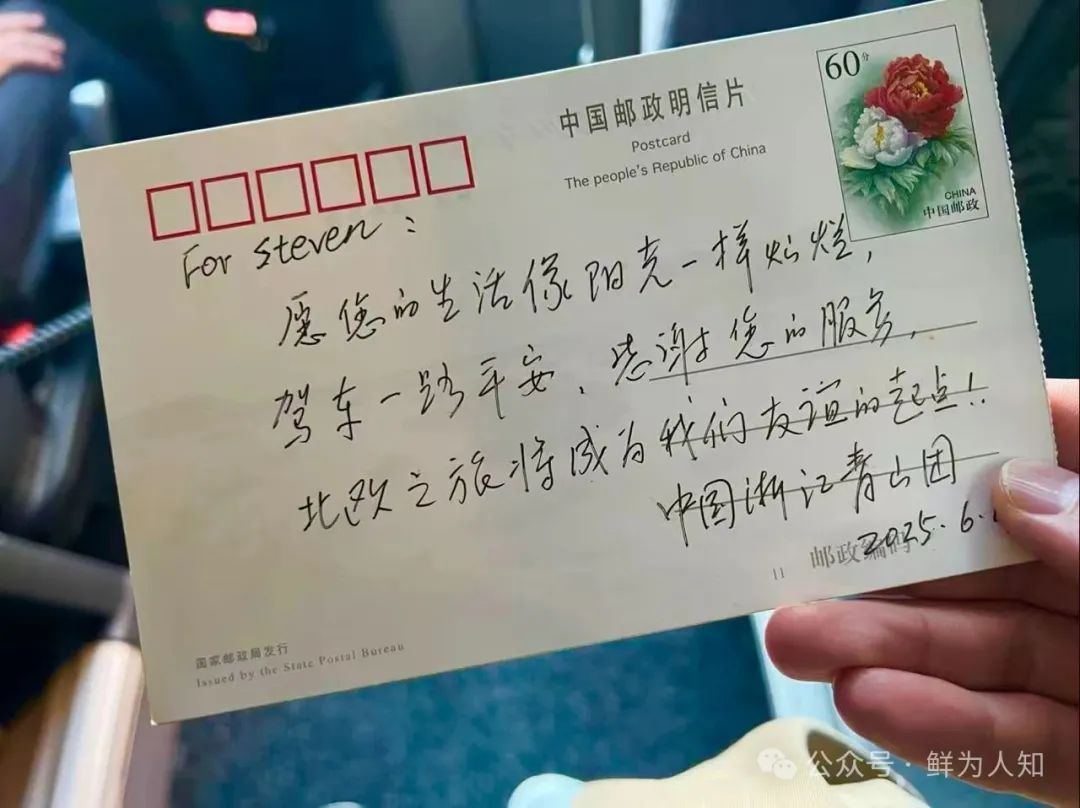 中国邮政明信片
Postcard
The people's Republic of China
60分
CHINA
中国邮政
For Steven：
愿您的生活像阳光一样灿烂，
驾车一路平安，感谢您的服务，
北欧之旅将成为我们友谊的起点！
中国浙江青山团
2025.6.
11 邮政编码
国家邮政局发行
Issued by the State Postal Bureau
公众号·鲜为人知